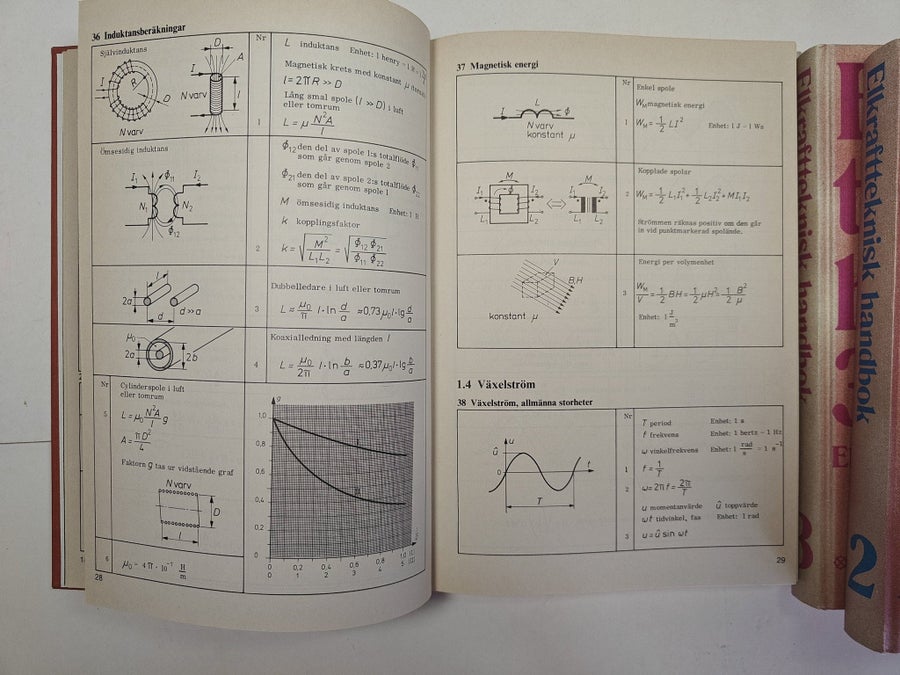 36 Induktansberäkningar
Självinduktans
Nr
L induktans Enhet: 1 henry = 1 H
D
A
I
R
D
N varv
I
N varv
l
Magnetisk krets med konstant μ
l = 2πR >> D
Lång smal spole (l >> D) i luft
eller tomrum
1
L = μ N²A / l
Ömsesidig induktans
I₁ Φ₁₁ I₂
N₁ N₂
Φ₁₂
Φ₁₂ den del av spole 1:s totalflöde Φ₁₁
som går genom spole 2
Φ₂₁ den del av spole 2:s totalflöde Φ₂₂
som går genom spole 1
M ömsesidig induktans Enhet: 1 H
k kopplingsfaktor
2
k = √(M² / L₁L₂) = √(Φ₁₂ Φ₂₁ / Φ₁₁ Φ₂₂)
l
2a
d
d >> a
Dubbelledare i luft eller tomrum
3
L = μ₀/π l · ln d/a ≈ 0,73 μ₀ l · lg d/a
μ₀
2a
2b
Koaxialledning med längden l
4
L = μ₀/2π l · ln b/a ≈ 0,37 μ₀ l · lg b/a
Nr
Cylinderspole i luft
eller tomrum
5
L = μ₀ N²A / l g
A = πD² / 4
Faktorn g tas ur vidstående graf
N varv
D
l
6
μ₀ = 4π · 10⁻⁷ H/m
g
1,0
0,8
0,6
0,4
0,2
0
I
II
0 0,2 0,4 0,6 0,8 1,0
0 1 2 3 4 5
28
37 Magnetisk energi
Nr
Enkel spole
L
I
Φ
N varv
konstant μ
W_M magnetisk energi
1
W_M = 1/2 LI² Enhet: 1 J = 1 Ws
Kopplade spolar
M M
I₁ Φ I₂ I₁ I₂
L₁ L₂ L₁ L₂
2
W_M = 1/2 L₁I₁² + 1/2 L₂I₂² + MI₁I₂
Strömmen räknas positiv om den går
in vid punktmarkerad spolände.
Energi per volymenhet
V
B,H
konstant μ
3
W_M/V = 1/2 BH = 1/2 μH² = 1/2 B²/μ
Enhet: 1 J/m³
1.4 Växelström
38 Växelström, allmänna storheter
Nr
T period Enhet: 1 s
f frekvens Enhet: 1 hertz = 1 Hz
ω vinkelfrekvens Enhet: 1 rad/s = 1 s⁻¹
u
û
0
t
T
1
f = 1/T
2
ω = 2πf = 2π/T
u momentanvärde û toppvärde
ωt tidvinkel, fas Enhet: 1 rad
3
u = û sin ωt
29
Elkraftteknisk handbok
3
Elkraftteknisk handbok
2